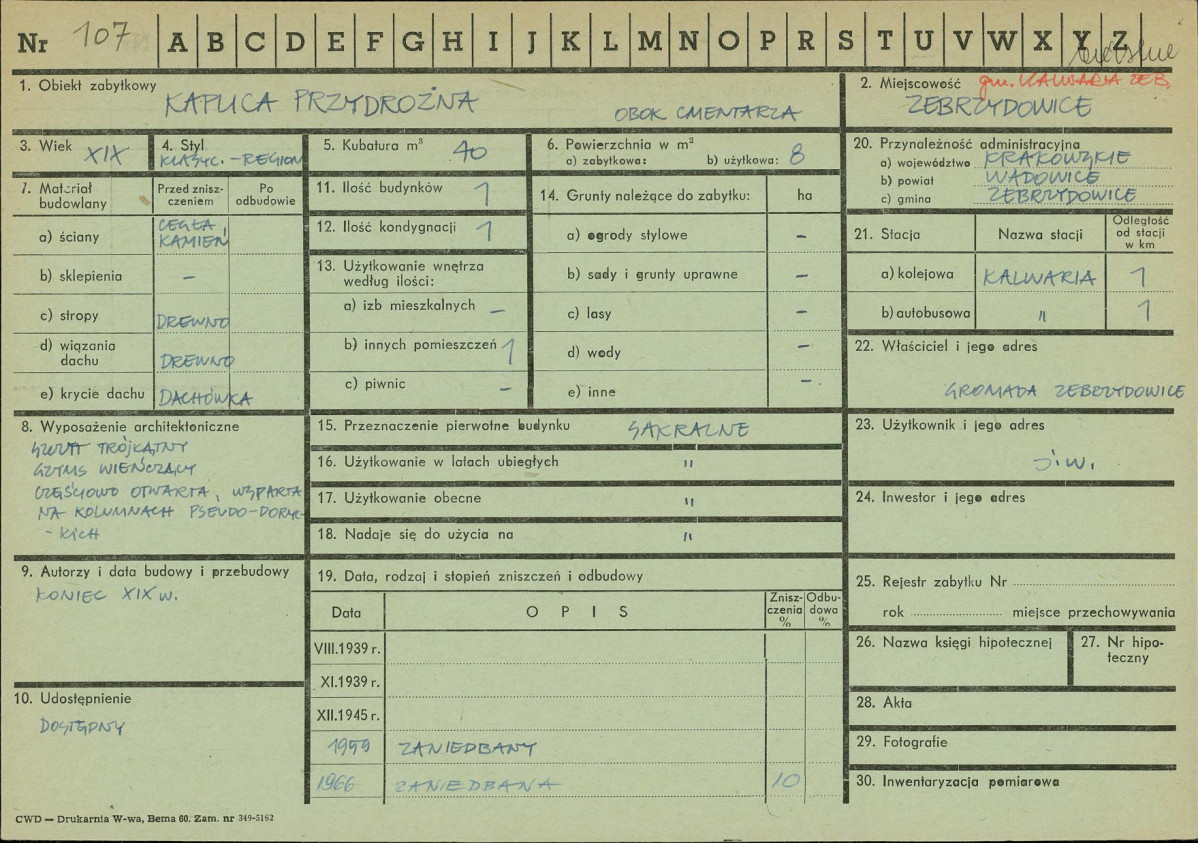 Nr 107 A B C D E F G H I J K L M N O P R S T U V W X Y Z
1. Obiekt zabytkowy
KAPLICA PRZYDROŻNA
OBOK CMENTARZA
2. Miejscowość gm. KALWARIA ZEB.
ZEBRZYDOWICE
3. Wiek XIX
4. Styl
KLASYC.-REGION
5. Kubatura m³ 40
6. Powierzchnia w m²
a) zabytkowa: b) użytkowa: 8
20. Przynależność administracyjna
a) województwo KRAKOWSKIE
b) powiat WADOWICE
c) gmina ZEBRZYDOWICE
7. Materiał budowlany
Przed zniszczeniem
Po odbudowie
a) ściany CEGŁA, KAMIEŃ
b) sklepienia –
c) stropy DREWNO
d) wiązania dachu DREWNO
e) krycie dachu DACHÓWKA
11. Ilość budynków 1
12. Ilość kondygnacji 1
13. Użytkowanie wnętrza
według ilości:
a) izb mieszkalnych –
b) innych pomieszczeń 1
c) piwnic –
14. Grunty należące do zabytku: ha
a) ogrody stylowe –
b) sady i grunty uprawne –
c) lasy –
d) wody –
e) inne –
21. Stacja Nazwa stacji Odległość od stacji w km
a) kolejowa KALWARIA 1
b) autobusowa " 1
22. Właściciel i jego adres
GROMADA ZEBRZYDOWICE
8. Wyposażenie architektoniczne
SZCZYT TRÓJKĄTNY
GZYMS WIEŃCZĄCY
CZĘŚCIOWO OTWARTA, WSPARTA
NA KOLUMNACH PSEUDO-DORYC-
-KICH
15. Przeznaczenie pierwotne budynku SAKRALNE
16. Użytkowanie w latach ubiegłych "
17. Użytkowanie obecne "
18. Nadaje się do użycia na "
23. Użytkownik i jego adres
j.w.
24. Inwestor i jego adres
9. Autorzy i data budowy i przebudowy
KONIEC XIX w.
19. Data, rodzaj i stopień zniszczeń i odbudowy
Data OPIS Zniszczenia % Odbudowa %
VIII.1939 r.
XI.1939 r.
XII.1945 r.
1959 ZANIEDBANY
1966 ZANIEDBANA 10
25. Rejestr zabytku Nr
rok miejsce przechowywania
26. Nazwa księgi hipotecznej
27. Nr hipoteczny
10. Udostępnienie
DOSTĘPNY
28. Akta
29. Fotografie
30. Inwentaryzacja pomiarowa
CWD — Drukarnia W-wa, Bema 60. Zam. nr 349-5162